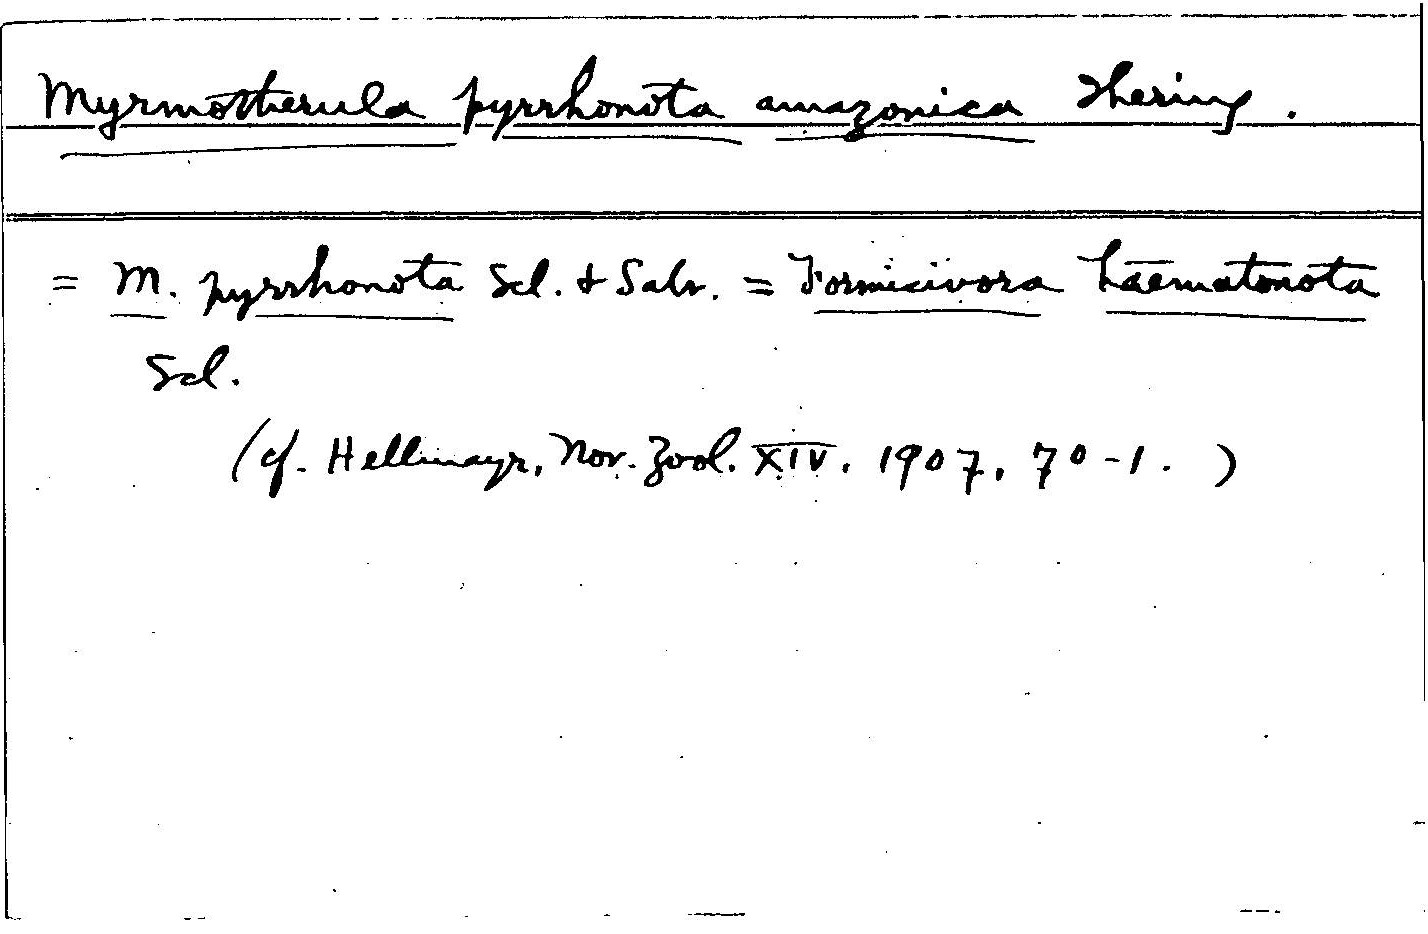 Myrmotherula pyrrhonota amazonica Ihering.
= M. pyrrhonota Scl. & Salv. = Formicivora haematonota
Scl.
(cf. Hellmayr, Nov. Zool. XIV. 1907, 70-1.)